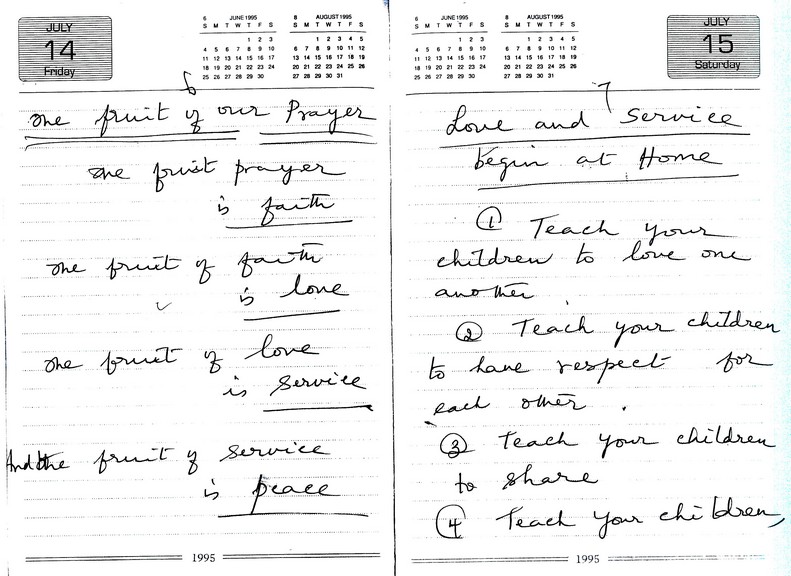 JULY
14
Friday
6 JUNE 1995
S M T W T F S
1 2 3
4 5 6 7 8 9 10
11 12 13 14 15 16 17
18 19 20 21 22 23 24
25 26 27 28 29 30
8 AUGUST 1995
S M T W T F S
1 2 3 4 5
6 7 8 9 10 11 12
13 14 15 16 17 18 19
20 21 22 23 24 25 26
27 28 29 30 31
6
The fruit of our Prayer
The fruit prayer
is faith
The fruit of faith
is love
The fruit of love
is Service
And the fruit of Service
is peace
1995
6 JUNE 1995
S M T W T F S
1 2 3
4 5 6 7 8 9 10
11 12 13 14 15 16 17
18 19 20 21 22 23 24
25 26 27 28 29 30
8 AUGUST 1995
S M T W T F S
1 2 3 4 5
6 7 8 9 10 11 12
13 14 15 16 17 18 19
20 21 22 23 24 25 26
27 28 29 30 31
JULY
15
Saturday
7
Love and Service
begin at Home
1 Teach your
children to love one
another.
2 Teach your children
to have respect for
each other.
3 Teach your children
to share
4 Teach your children,
1995